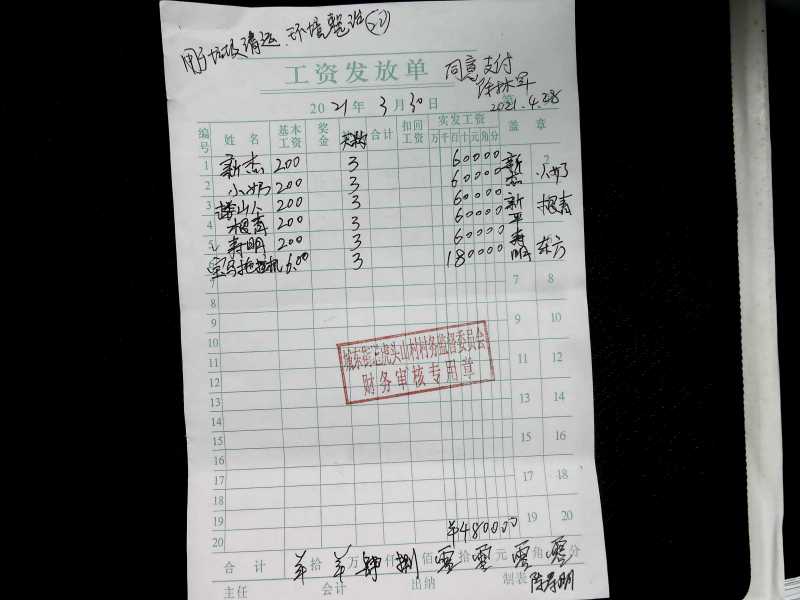 用于垃圾清运、环境整治
工资发放单
同意支付
2021年3月30日
2021.4.28
编号 姓名 基本工资 奖金 天数 合计 扣回工资 实发工资 盖章
万 千 百 十 元 角 分
1 新杰 200 3 60000 新杰
2 小奶 200 3 60000 小奶
3 楼山人 200 3 60000 新平
4 根青 200 3 60000 根青
5 寿明 200 3 60000 寿明
宝马拖拉机 600 3 180000 东方
7 8
8
9 9 10
10
11 11 12
12
13 13 14
14
15 15 16
16
17 17 18
18
19 19 20
20 ¥480000
城东街道虎头山村财务监督委员会
财务审核专用章
合计 拾 万肆仟捌佰零拾零元零角零分
主任 会计 出纳 制表 陈寿明